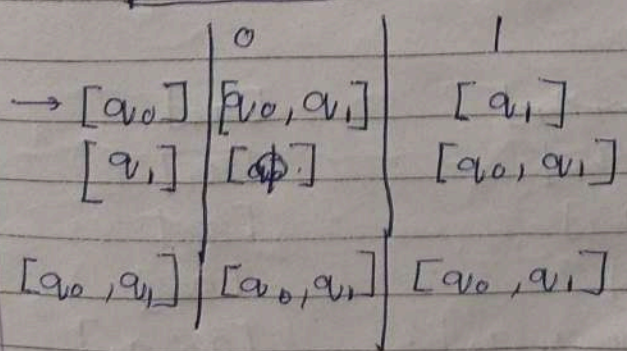 0 1
→ [q₀] [q₀, q₁] [q₁]
[q₁] [ϕ] [q₀, q₁]
[q₀, q₁] [q₀, q₁] [q₀, q₁]